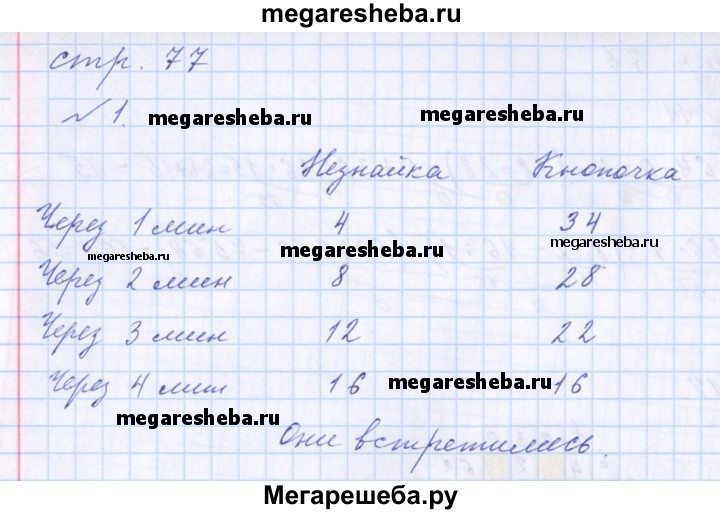 megaresheba.ru
стр. 77
№ 1. megaresheba.ru megaresheba.ru
Незнайка Кнопочка
Через 1 мин 4 34
megaresheba.ru megaresheba.ru megaresheba.ru
Через 2 мин 8 28
Через 3 мин 12 22
Через 4 мин 16 megaresheba.ru 16
megaresheba.ru
Они встретились.
Мегарешеба.ру